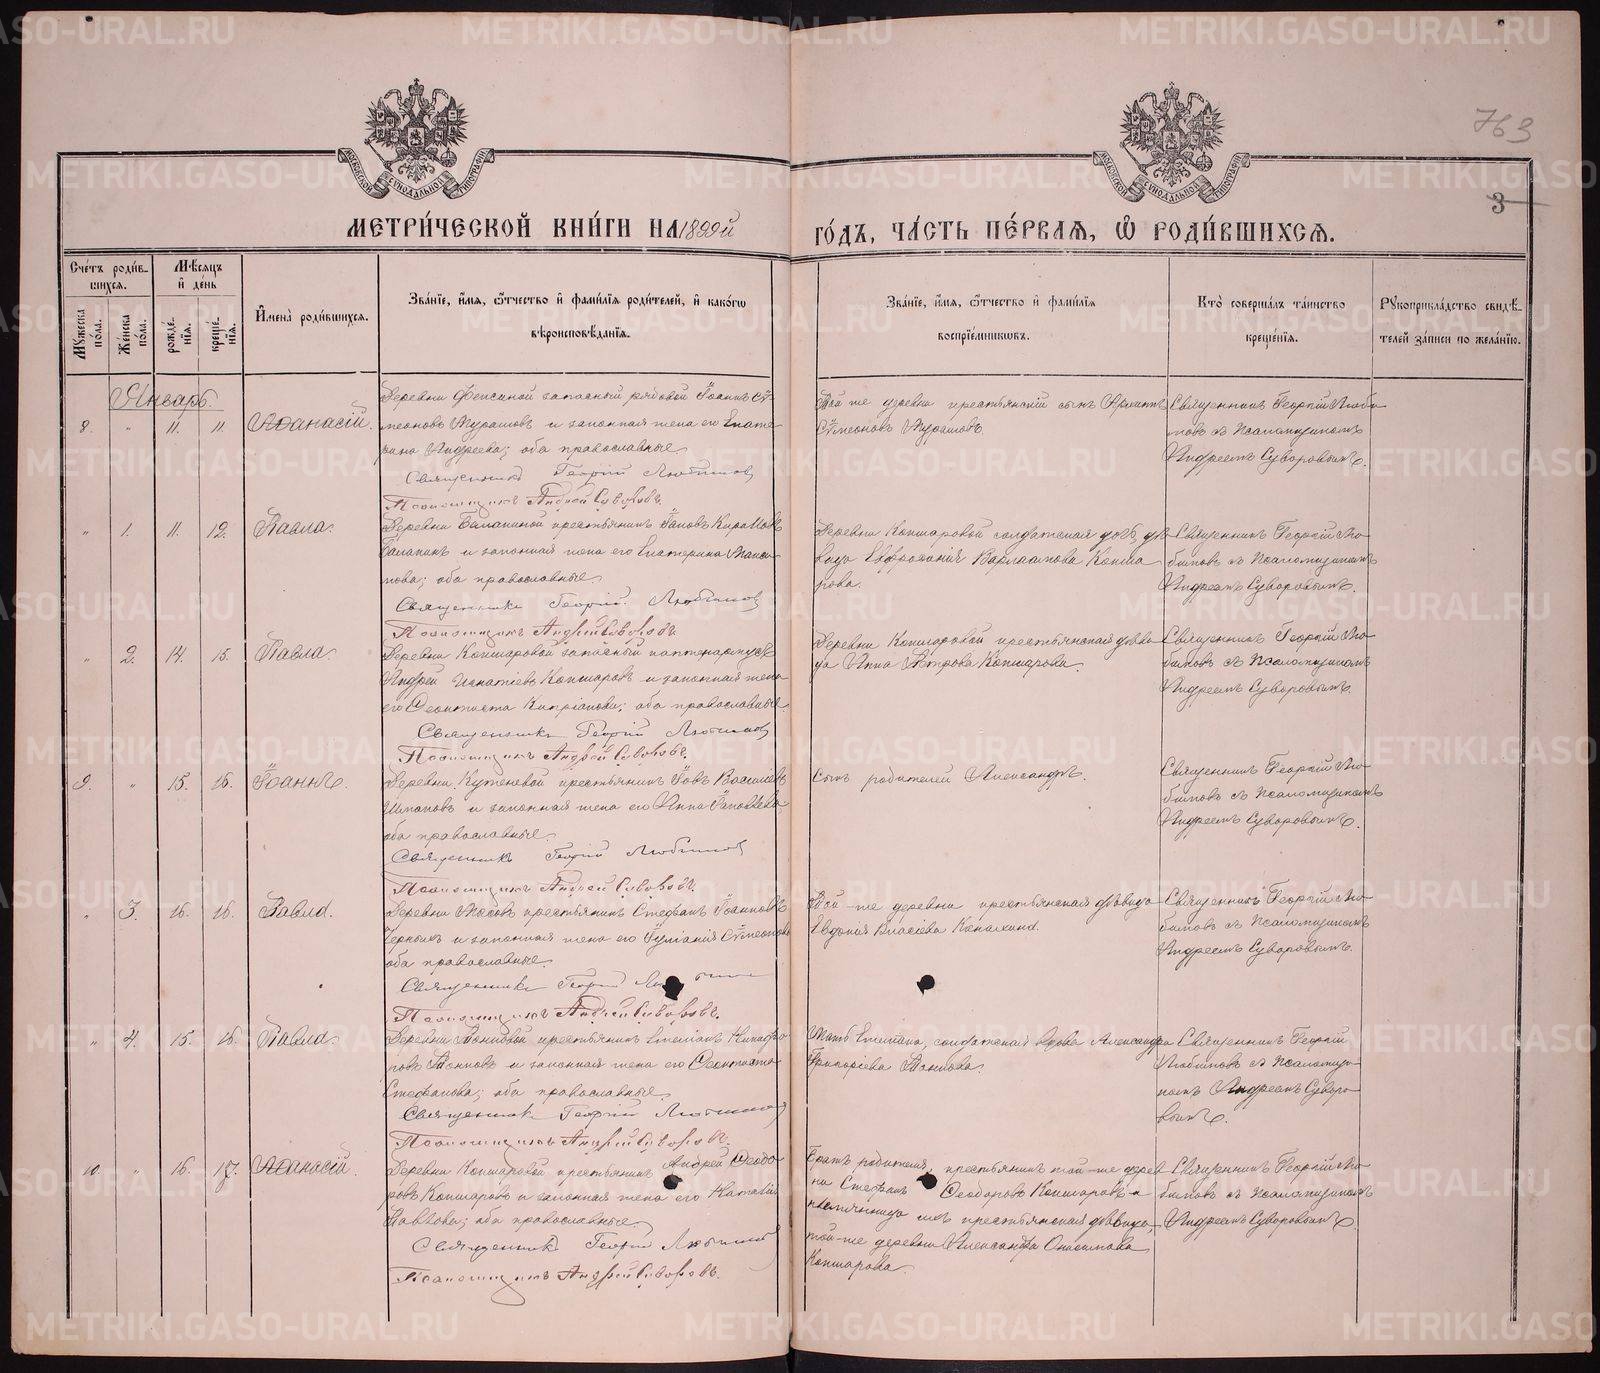 763
3
МОСКОВСКОЙ СѴНОДАЛЬНОЙ ТИПОГРАФІИ
МОСКОВСКОЙ СѴНОДАЛЬНОЙ ТИПОГРАФІИ
МЕТРИ́ЧЕСКОЙ КНИ́ГИ НА 1899й ГО́ДЪ, ЧА́СТЬ ПЕ́РВАЯ, Ѡ РОДИ́ВШИХСЯ.
Сче́тъ роди́вшихся.
Мꙋжеска по́ла.
Же́нска по́ла.
Мѣсяцъ и де́нь
рожде́нїя.
креще́нїя.
И҆мена̀ роди́вшихся.
Зва́нїе, и҆́мя, ѻ҆́тчество и҆ фами́лїя роди́телей, и҆ како́гѡ
вѣроисповѣ́данїя.
Зва́нїе, и҆́мя, ѻ҆́тчество и҆ фами́лїя
воспрїе́мникѡвъ.
Кто̀ соверша́лъ та́инство
креще́нїя.
Рꙋкоприкла́дство свидѣ́-
телей за́писи по жела́нїю.
Январь.
8. " 11. 11 Аѳанасій.
Деревни запасный рядовой Іоаннъ Сѵ-
меоновъ Мурашовъ и законная жена его Екате-
рина Андреева; оба православные
Священникъ Георгій Любимов
Псаломщикъ Андрей Суворовъ.
Той-же деревни крестьянскій сынъ
Сѵмеоновъ Мурашовъ.
Священникъ Георгій Люби-
мовъ съ Псаломщикомъ
Андреемъ Суворовымъ.
" 1. 11. 12. Павла.
Деревни Балакиной крестьянинъ
Балакинъ и законная жена его Екатерина
оба православные
Священникъ Георгій Любимов
Псаломщикъ Андрей Суворовъ
Деревни Кокшаровой солдатская дочь, дѣ-
вица Евфросинія Варлаамова Кокша
рова.
Священникъ Георгій Лю-
бимовъ съ Псаломщикомъ
Андреемъ Суворовымъ.
" 2. 14. 15. Павла.
Деревни Кокшаровой запасный
Андрей Игнатіевъ Кокшаровъ и законная жена
его Ѳеоктиста Кипріанова; оба православные
Священникъ Георгій Любимов
Псаломщикъ Андрей Суворовъ.
Деревни Кокшаровой крестьянская дѣви
ца Анна Петрова Кокшарова.
Священникъ Георгій Лю-
бимовъ съ Псаломщикомъ
Андреемъ Суворовымъ.
9. " 15. 16. Іоаннъ.
Деревни крестьянинъ Іовъ Васильевъ
и законная жена его Анна Іаковлева
оба православные
Священникъ Георгій Любимов
Псаломщикъ Андрей Суворовъ.
Сынъ родителей Александръ.
Священникъ Георгій Лю-
бимовъ съ Псаломщикомъ
Андреемъ Суворовымъ.
" 3. 16. 16. Павла.
Деревни крестьянинъ Стефанъ Іоанновъ
Черныхъ и законная жена его Іуліанія Сѵмеонова
оба православные.
Священникъ Георгій
Псаломщикъ Андрей Суворовъ.
Той-же деревни крестьянская дѣвица
Евдокія Власіева
Священникъ Георгій Лю-
бимовъ съ Псаломщикомъ
Андреемъ Суворовымъ.
" 4. 15. 16. Павла.
Деревни крестьянинъ
и законная жена его Ѳеоктиста
Стефанова; оба православные.
Священникъ Георгій Любимов
Псаломщикъ Андрей Суворовъ.
солдатская вдова Александра
Григоріева
Священникъ Георгій
Любимовъ съ Псаломщи-
комъ Андреемъ Суворо-
вымъ.
10 " 16. 17. Аѳанасій.
Деревни Кокшаровой крестьянинъ Андрей Ѳеодо-
ровъ Кокшаровъ и законная жена его Наталія
Павлова; оба православные
Священникъ Георгій Любимов
Псаломщикъ Андрей Суворовъ.
Братъ родителя, крестьянинъ той-же дерев
ни Стефанъ Ѳеодоровъ Кокшаровъ и
племянница ихъ крестьянская дѣвица,
той-же деревни Александра Онисимова
Кокшарова.
Священникъ Георгій Лю-
бимовъ съ Псаломщикомъ
Андреемъ Суворовымъ.
METRIKI.GASO-URAL.RU